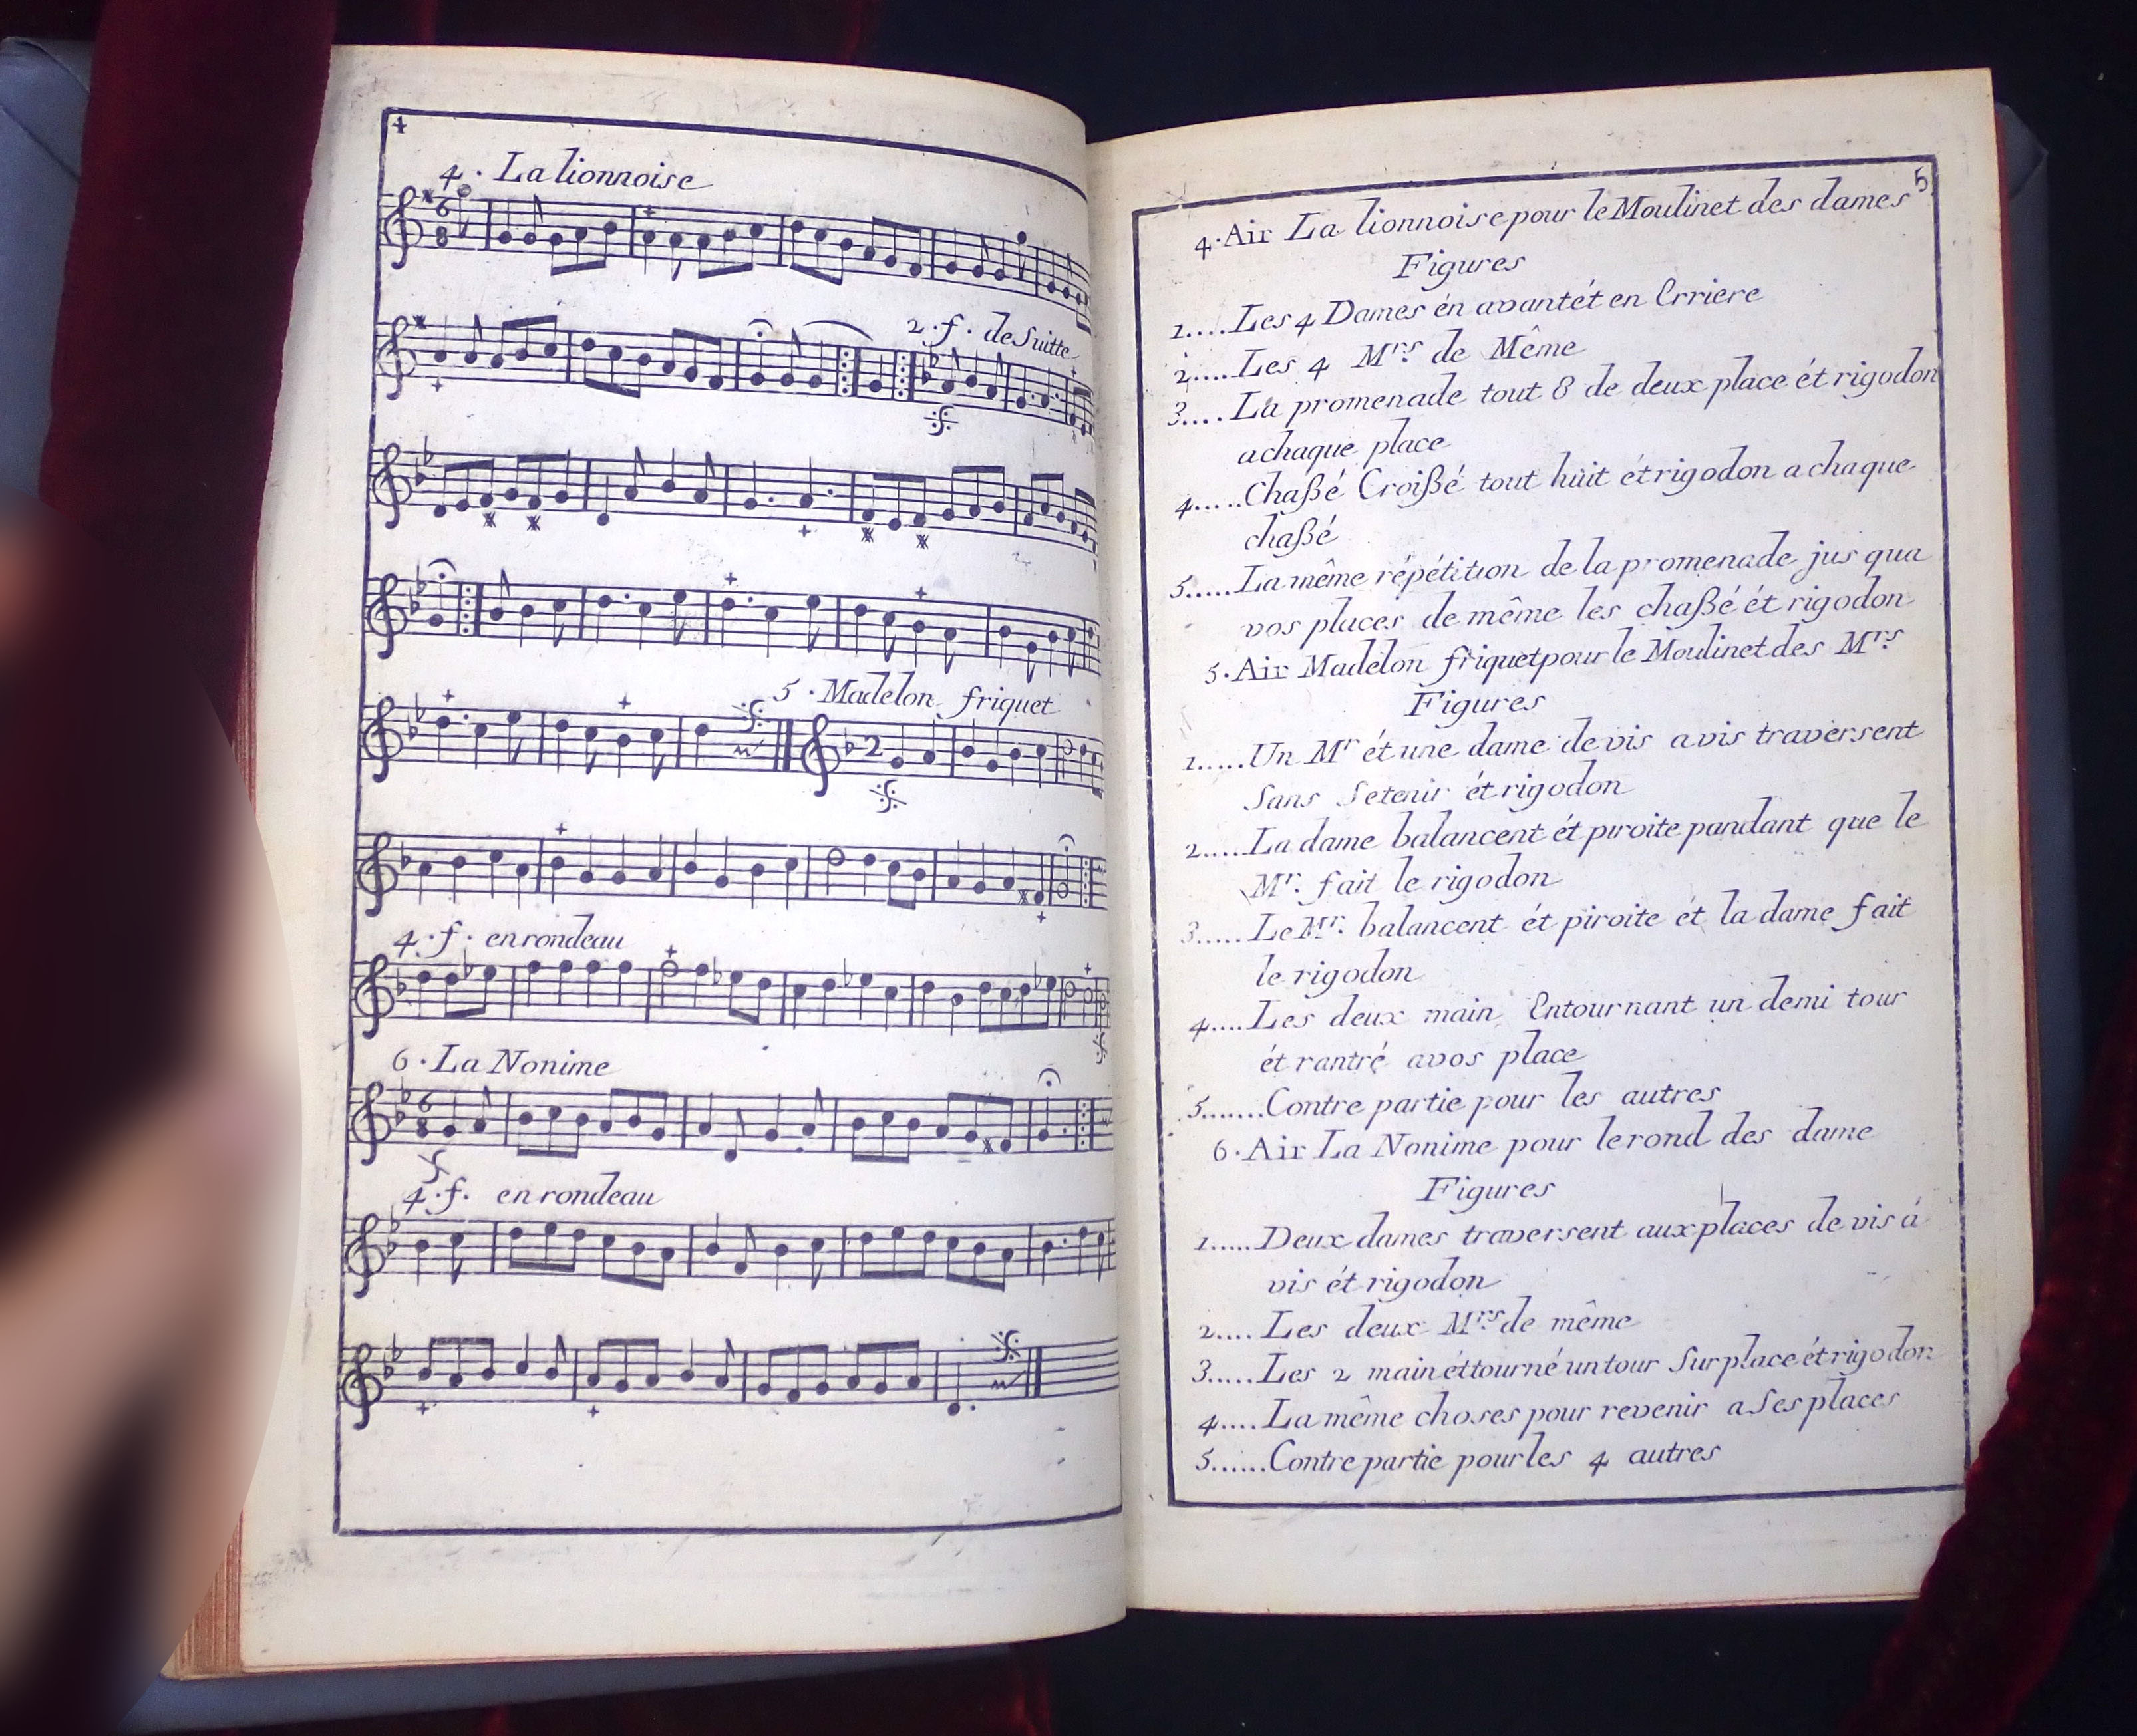 4
4. La lionnoise
2.f. de Suitte
5. Madelon friquet
4.f. en rondeau
6. La Nonime
4.f. en rondeau
5
4. Air La lionnoise pour le Moulinet des dames
Figures
1.... Les 4 Dames én avant ét en Erriere
2.... Les 4 Mrs. de Même
3.... La promenade tout 8 de deux place ét rigodon
a chaque place
4..... Chaßé Croißé tout hüit ét rigodon a chaque
chaßé
5..... La même répétition de la promenade jus qua
vos places de même les chaßé ét rigodon
5. Air Madelon friquet pour le Moulinet des Mrs.
Figures
1..... Un Mr ét une dame de vis a vis traversent
Sans Setenir ét rigodon
2..... La dame balancent ét piroite pandant que le
Mr. fait le rigodon
3..... Le Mr. balancent ét piroite ét la dame fait
le rigodon
4.... Les deux main Entournant un demi tour
ét rantré avos place
5....... Contre partie pour les autres
6. Air La Nonime pour le rond des dame
Figures
1..... Deux dames traversent aux places de vis á
vis ét rigodon
2.... Les deux Mrs de même
3..... Les 2 main ét tourné un tour Sur place ét rigodon
4.... La même choses pour revenir a Ses places
5...... Contre partie pour les 4 autres